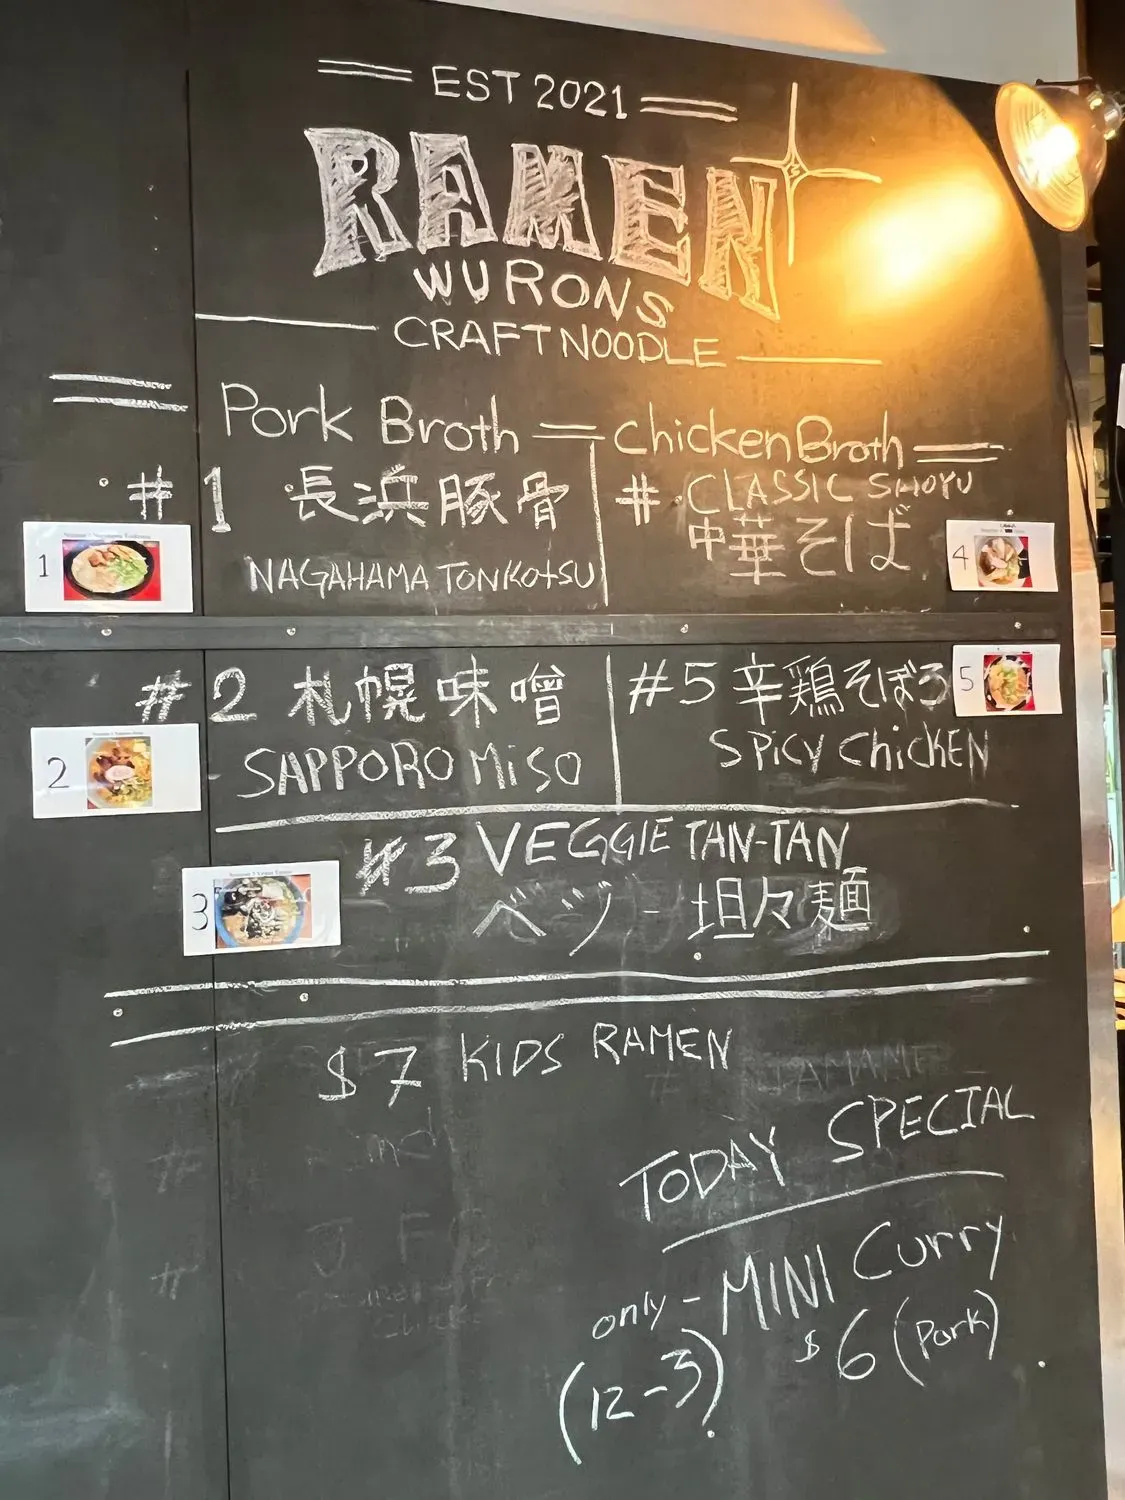 EST 2021
RAMEN
WURONS
CRAFT NOODLE
Pork Broth
#1 長浜豚骨
NAGAHAMA TONKOTSU
1
#2 札幌味噌
SAPPORO MiSO
2
Chicken Broth
# CLASSIC SHOYU
中華そば
4
#5 辛鶏そぼろ
SPiCY CHiCKEN
5
#3 VEGGIE TAN-TAN
ベジ-坦々麺
3
$7 KIDS RAMEN
TODAY SPECIAL
only - MINI Curry
(12-3) $6 (Pork)